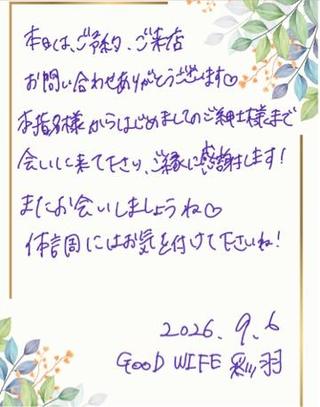 本日は、ご予約、ご来店
お問い合わせありがとうございます♡
本指名様からはじめましてのご紳士様まで
会いに来て下さり、ご縁に感謝します！
またお会いしましょうね♡
体調にはお気を付けて下さいね！
2026. 9. 6
GOOD WIFE 彩羽